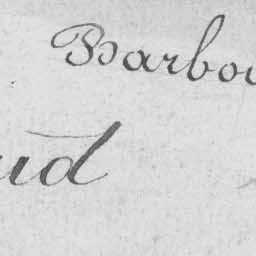 Barbou
ud